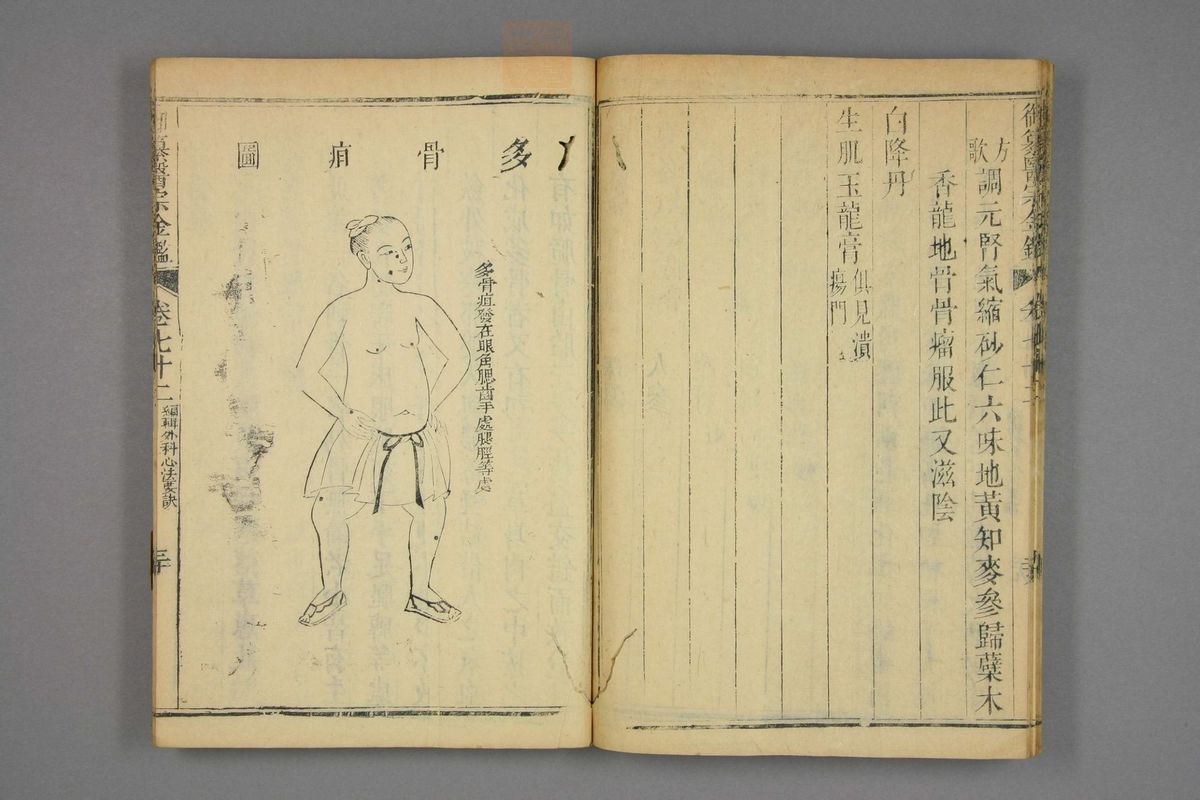 御纂醫宗金鑑
卷七十二
方歌
調元腎氣縮砂仁六味地黃知麥參歸蘗木
香龍地骨骨瘤服此又滋陰
白降丹
生肌玉龍膏
俱見潰
瘍門
多骨疽圖
多骨疽發在眼角腮齒手處腿脛等處
御纂醫宗金鑑
卷七十二
編輯外科心法要訣
三十